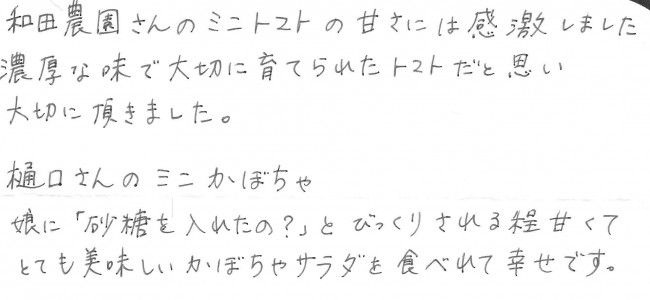 和田農園さんのミニトマトの甘さには感激しました
濃厚な味で大切に育てられたトマトだと思い
大切に頂きました。
樋口さんのミニかぼちゃ
娘に「砂糖を入れたの?」とびっくりされる程甘くて
とても美味しいかぼちゃサラダを食べれて幸せです。